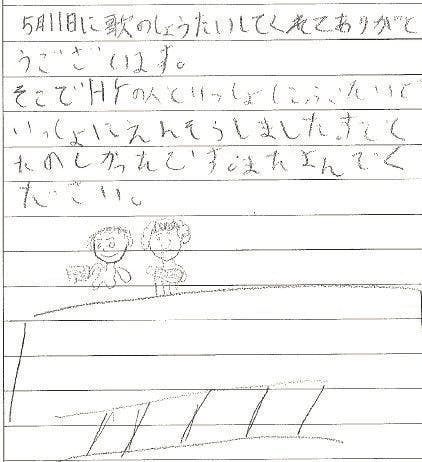 5月11日に歌のしょうたいしてくれてありがと
うございます。
そこでHケの人といっしょにぶたいで
いっしょにえんそうしました。すごく
たのしかったです。またよんでく
ださい。